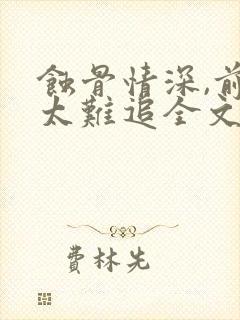 蝕骨情深,前
太難追全文
費林先